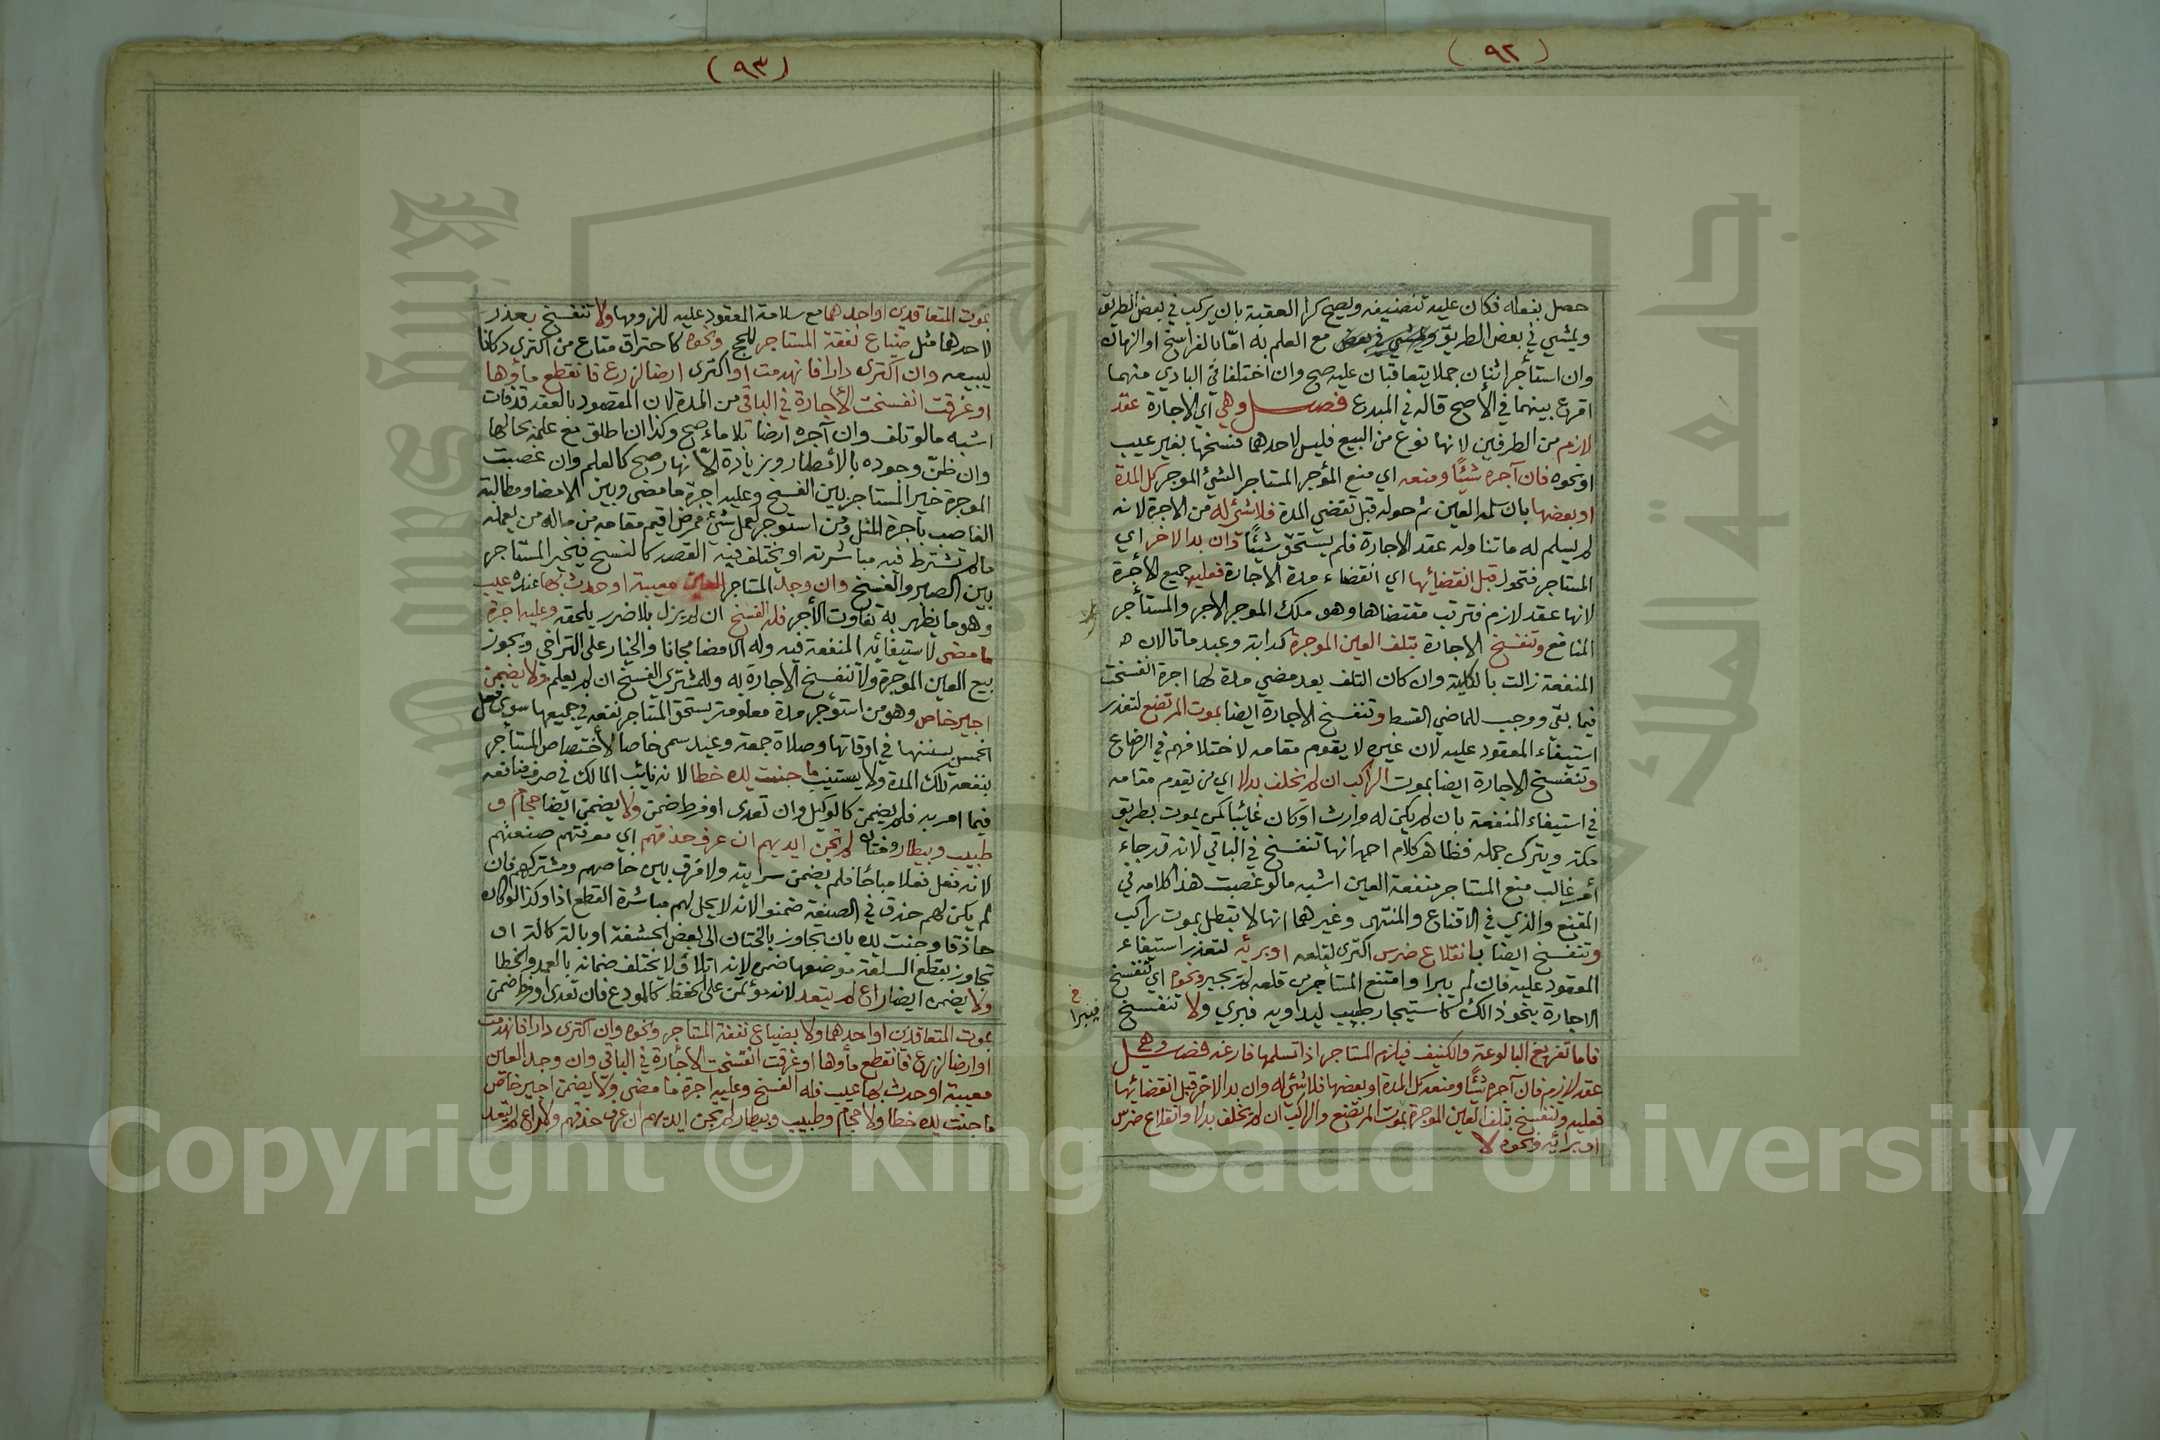 (٩٢)
حصل بفعله فكان عليه تنضيفه ويصح كرا العقبة بان يركب في بعض الطريق
ويمشي في بعض الطريق مع العلم به امّا بالفراسخ او الزمان
وان استأجر اثنان جملا يتعاقبان عليه صح وان اختلفا في البادي منهما
اقرع بينهما في الأصح قاله في المبدع فصل وهي اي الاجارة عقد
لازم من الطرفين لانها نوع من البيع فليس لاحدهما فسخها بغير عيب
او نحوه فان آجره شيئًا ومنعه اي منع المؤجر المستاجر الشئ الموجر كل المدة
او بعضها بان سلمه العين ثم حوله قبل تقضي المدة فلا شئ له من الاجرة لانه
لم يسلم له ما تناوله عقد الاجارة فلم يستحق شيئًا وان بدا لاخر اي
المستاجر فتحول قبل انقضائها اي انقضاء مدة الاجارة فعليه جميع الأجرة
لانها عقد لازم فترتب مقتضاها وهو ملك الموجر الاجر والمستأجر
المنافع وتنفسخ الاجارة بتلف العين الموجرة كدابة وعبد ماتا لان
المنفعة زالت بالكلية وان كان التلف بعد مضي مدة لها اجرة انفسخت
فيما بقي ووجب للماضي القسط وتنفسخ الاجارة ايضا بموت المرتضع لتعذر
استيفاء المعقود عليه لان غيره لا يقوم مقامه لاختلافهم في الرضاع
وتنفسخ الاجارة ايضا بموت الراكب ان لم يخلف بدلا اي من يقوم مقامه
في استيفاء المنفعة بان لم يكن له وارث او كان غائبا كمن يموت بطريق
مكة ويترك جمله فظاهر كلام احمد انها تنفسخ في الباقي لانه قد جاء
أمر غالب منع المستاجر منفعة العين اشبه ما لو غصبت هذا كلامه في
المقنع والذي في الاقناع والمنتهى وغيرهما انها لا تبطل بموت راكب
وتنفسخ ايضا بانقلاع ضرس اكترى لقلعه او برئه لتعذر استيفاء
المعقود عليه فان لم يبرا وامتنع المستاجر من قلعه لم يجبر ونحوه اي تنفسخ
الاجارة بنحو ذالك كاستيجار طبيب ليداويه فبري ولا تنفسخ
خ
فيبرا
فاما تفريغ البالوعة والكنيف فيلزم المستاجر اذا تسلمها فارغه فصل وهي
عقد لازم فان آجره شيئًا ومنعه كل المدة او بعضها فلا شئ له وان بدا لاخر قبل انقضائها
فعليه وتنفسخ بتلف العين الموجرة بموت المرتضع والراكب ان لم يخلف بدلا وانقلاع ضرس
او برائه ونحوه لا
(٩٣)
بموت المتعاقدين او احدهما مع سلامة المعقود عليه للزومها ولا تنفسخ بعذر
لاحدهما مثل ضياع نفقة المستاجر للحج ونحوه كاحتراق متاع من اكترى دكانا
ليبيعه وان اكترى دارا فانهدمت او اكترى ارضا لزرع فانقطع ماؤها
او غرقت انفسخت الأجارة في الباقي من المدة لان المقصود بالعقد قد فات
اشبه ما لو تلف وان آجره ارضا بلا ماء صح وكذا ان اطلق مع علمه بحالها
وان ظن وجوده بالامطار وبزيادة الانهار صح كالعلم وان غصبت
الموجرة خير المستاجر بين الفسخ وعليه اجرة ما مضى وبين الامضا ومطالبة
الغاصب باجرة المثل ومن استوجر لعمل شئ فمرض اقيم مقامه من ماله من يعمله
مالم تشترط فيه مباشرته او يختلف فيه القصد كالنسخ فيخير المستاجر
بين الصبر والفسخ وان وجد المستاجر العين معيبة او حدث بها عنده عيب
وهو ما يظهر به تفاوت الأجر فله الفسخ ان لم يزل بلا ضرر يلحقه وعليه اجرة
ما مضى لاستيفائه المنفعة فيه وله الامضا مجانا والخيار على التراخي ويجوز
بيع العين الموجرة ولا تنفسخ الاجارة به وللمشتري الفسخ ان لم يعلم ولا يضمن
اجير خاص وهو من استؤجر مدة معلومة يستحق المستاجر نفعه في جميعها سوى فعل
الخمس بسننها في اوقاتها وصلاة جمعة وعيد سمي خاصا لأختصاص المستاجر
بنفعه تلك المدة ولا يستنيب ما جنت يده خطا لانه نائب المالك في صرف منافعه
فيما امر به فلم يضمن كالوكيل وان تعدى او فرط ضمن ولا يضمن ايضا حجام و
طبيب وبيطار وختان لم تجن ايديهم ان عرف حذقهم اي معرفتهم صنعتهم
لانه فعل فعلا مباحا فلم يضمن سرايته ولا فرق بين خاصهم ومشتركهم فان
لم يكن لهم حذق في الصنعة ضمنوا لانه لا يحل لهم مباشرة القطع اذا وكذا لو كان
حاذقا وجنت يده بان تجاوز بالختان الى بعض الحشفة او بآلة كالة او
تجاوز بقطع السلعة موضعها ضمن لانه اتلاف لا يختلف ضمانه بالعمد والخطا
ولا يضمن ايضا راع لم يتعد لانه مؤتمن على الحفظ كالمودع فان تعدى او فرط ضمن
بموت المتعاقدين او احدهما ولا بضياع نفقة المستاجر ونحوه وان اكترى دارا فانهدمت
او ارضا لزرع فانقطع ماؤها او غرقت انفسخت الأجارة في الباقي وان وجد العين
معيبة او حدث بها عيب فله الفسخ وعليه اجرة ما مضى ولا يضمن اجير خاص
ما جنت يده خطا ولا حجام وطبيب وبيطار لم تجن ايديهم ان عرف حذقهم ولا راع لم يتعد
Copyright © King Saud University
King Saud University
جامعة الملك سعود